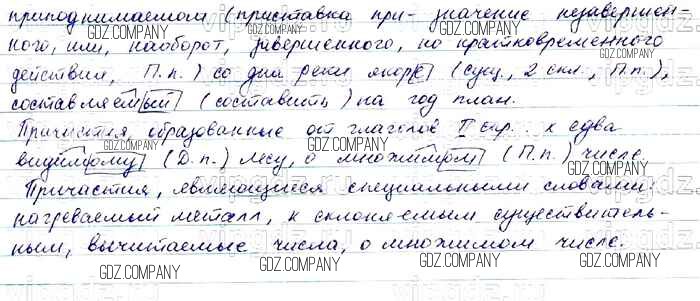 приподнимаемом (приставка при- значение незавершен-
ного, или, наоборот, завершенного, но кратковременного
действия, П.п.) со дна реки якоре (сущ., 2 скл., П.п.),
составляемый (составить) на год план.
Причастия, образованные от глаголов II спр.: к едва
видимому (Д.п.) лесу, о множимом (П.п.) числе.
Причастия, являющиеся специальными словами:
нагреваемый металл, к склоняемым существитель-
ным, вычитаемые числа, о множимом числе.
GDZ.COMPANY
vipgdz.ru